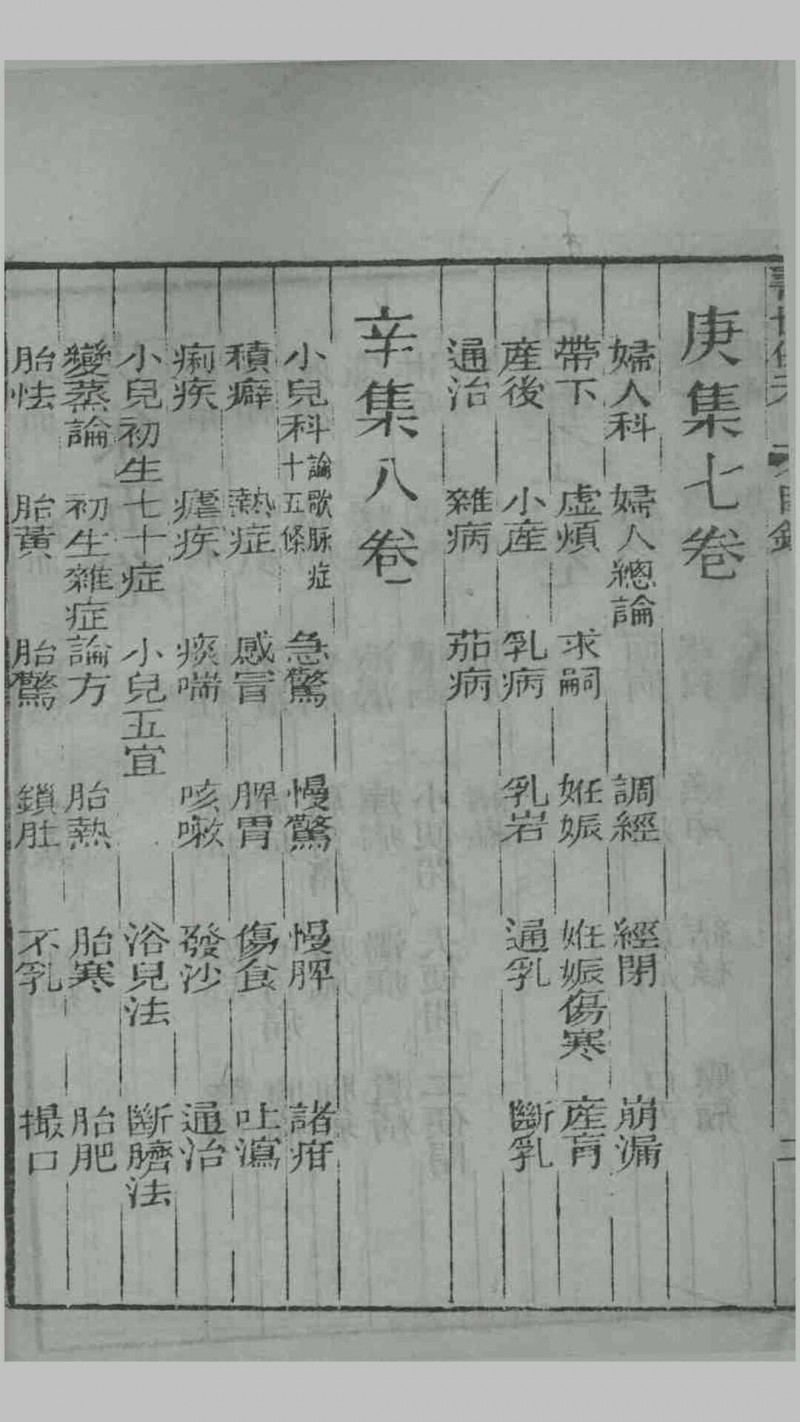 目錄
庚集七卷
婦人科 婦人總論 調經 經閉 崩漏
帶下 虛煩 求嗣 妊娠 妊娠傷寒 產育
產後 小產 乳病 乳岩 通乳 斷乳
通治 雜病 茄病
辛集八卷
小兒科 論歌脉症十五條 急驚 慢驚 慢脾 諸疳
積癖 熱症 感冒 脾胃 傷食 吐瀉
痢疾 瘧疾 痰喘 咳嗽 發沙 通治
小兒初生七十症 小兒五宜 浴兒法 斷臍法
變蒸論 初生雜症論方 胎熱 胎寒 胎肥
胎怯 胎黃 胎驚 鎖肚 不乳 撮口